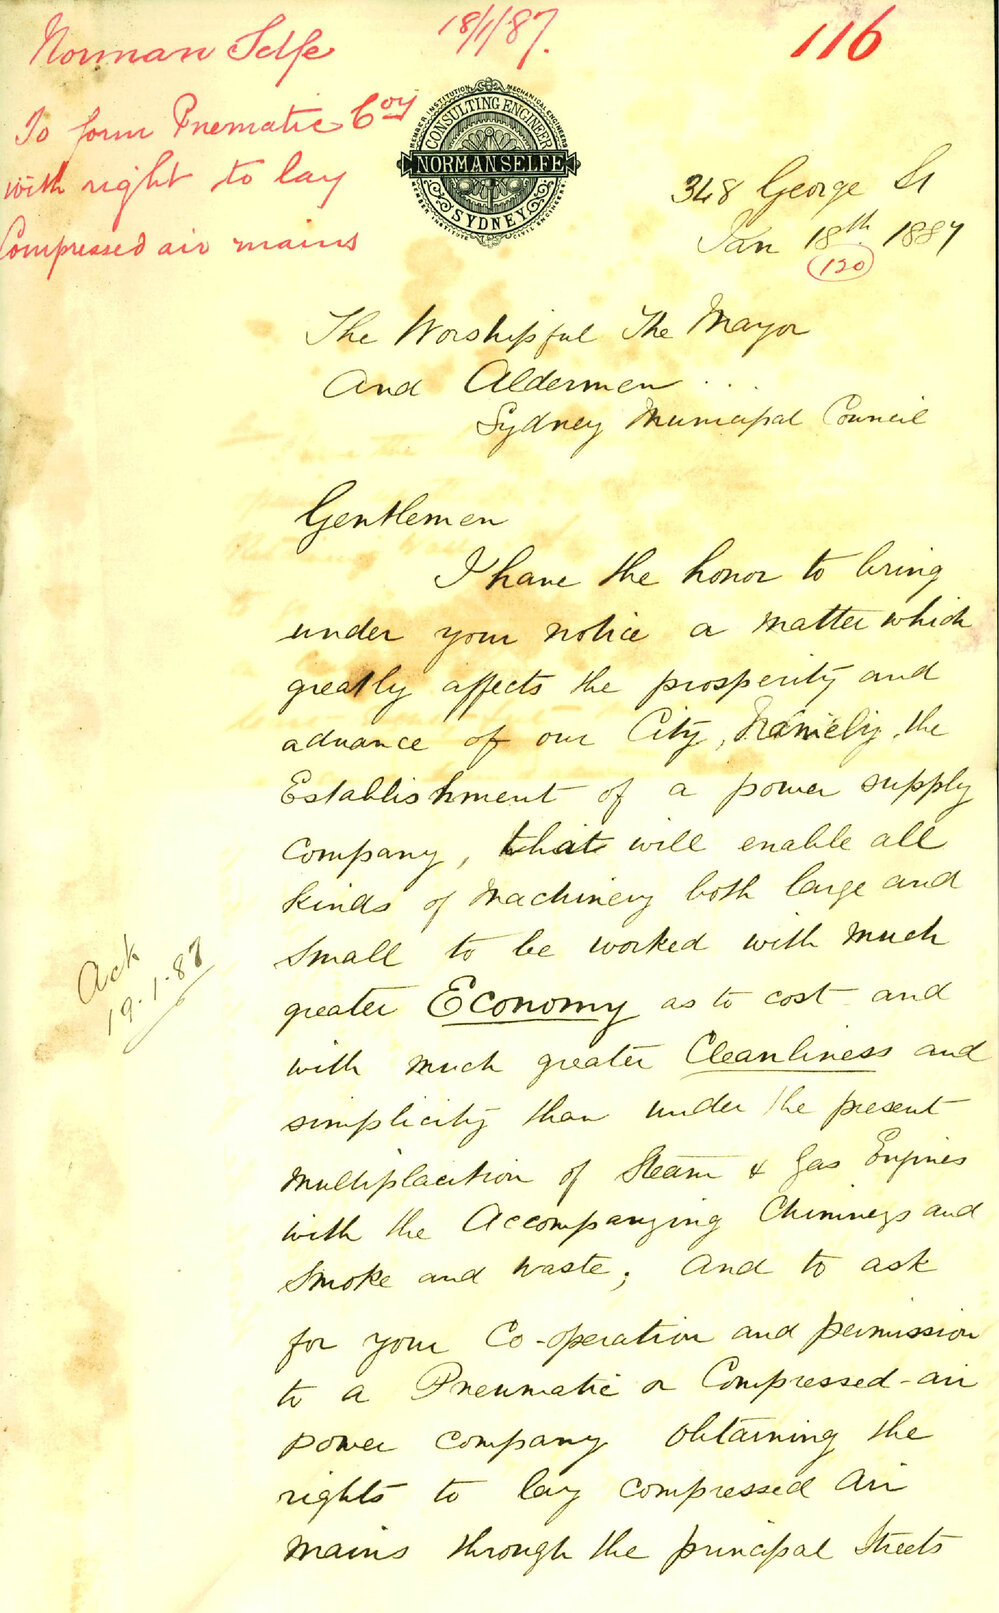 Norman Selfe
18/1/87.
116
To form Pnematic Coy
with right to lay
Compressed air mains
MEMBER INSTITUTION MECHANICAL ENGINEERS
CONSULTING ENGINEER
NORMAN SELFE
SYDNEY
348 George St
Jan 18th 1887
(120)
The Worshipful The Mayor
And Aldermen ...
Sydney Municipal Council
Gentlemen
I have the honor to bring
under your notice a matter which
greatly affects the prosperity and
advance of our City, Namely, the
Establishment of a power supply
company, that will enable all
kinds of Machinery both large and
small to be worked with much
greater Economy as to cost and
with much greater Cleanliness and
simplicity than under the present
Multiplacition of Steam & Gas Engines
with the Accompanying Chimneys and
Smoke and waste; And to ask
for your Co-operation and permission
to a Pneumatic or Compressed-air
power company obtaining the
rights to lay compressed air
mains through the principal Streets
Ack
19.1.87